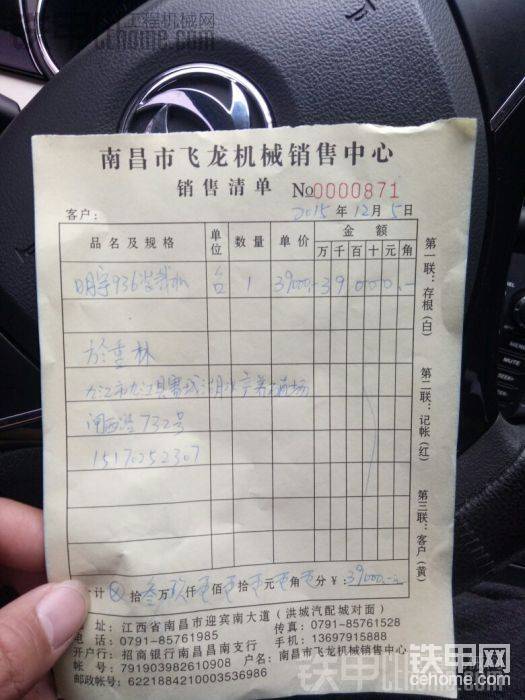 工程机械网
cehome.com
南昌市飞龙机械销售中心
销售清单 No0000871
客户: 2015年12月5日
品名及规格 单位 数量 单价 金额
万 千 百 十 元 角
明宇936装载机 台 1 39000.- 39000.-
於重林
九江市九江县赛城湖水产养殖场
闸西港732号
15170252307
计 ⊗拾叁万玖仟零佰零拾零元零角零分¥:39000.-
址:江西省南昌市迎宾南大道(洪城汽配城对面)
电话:0791-85761985 传真:0791-85761528
手机:13697915888
开户行:招商银行南昌昌南支行
帐号:791903982610908 户名:南昌市飞龙机械销售中心
邮政帐号:6221884210003536986
第一联:存根(白)
第二联:记帐(红)
第三联:客户(黄)
铁甲网
cehome.com